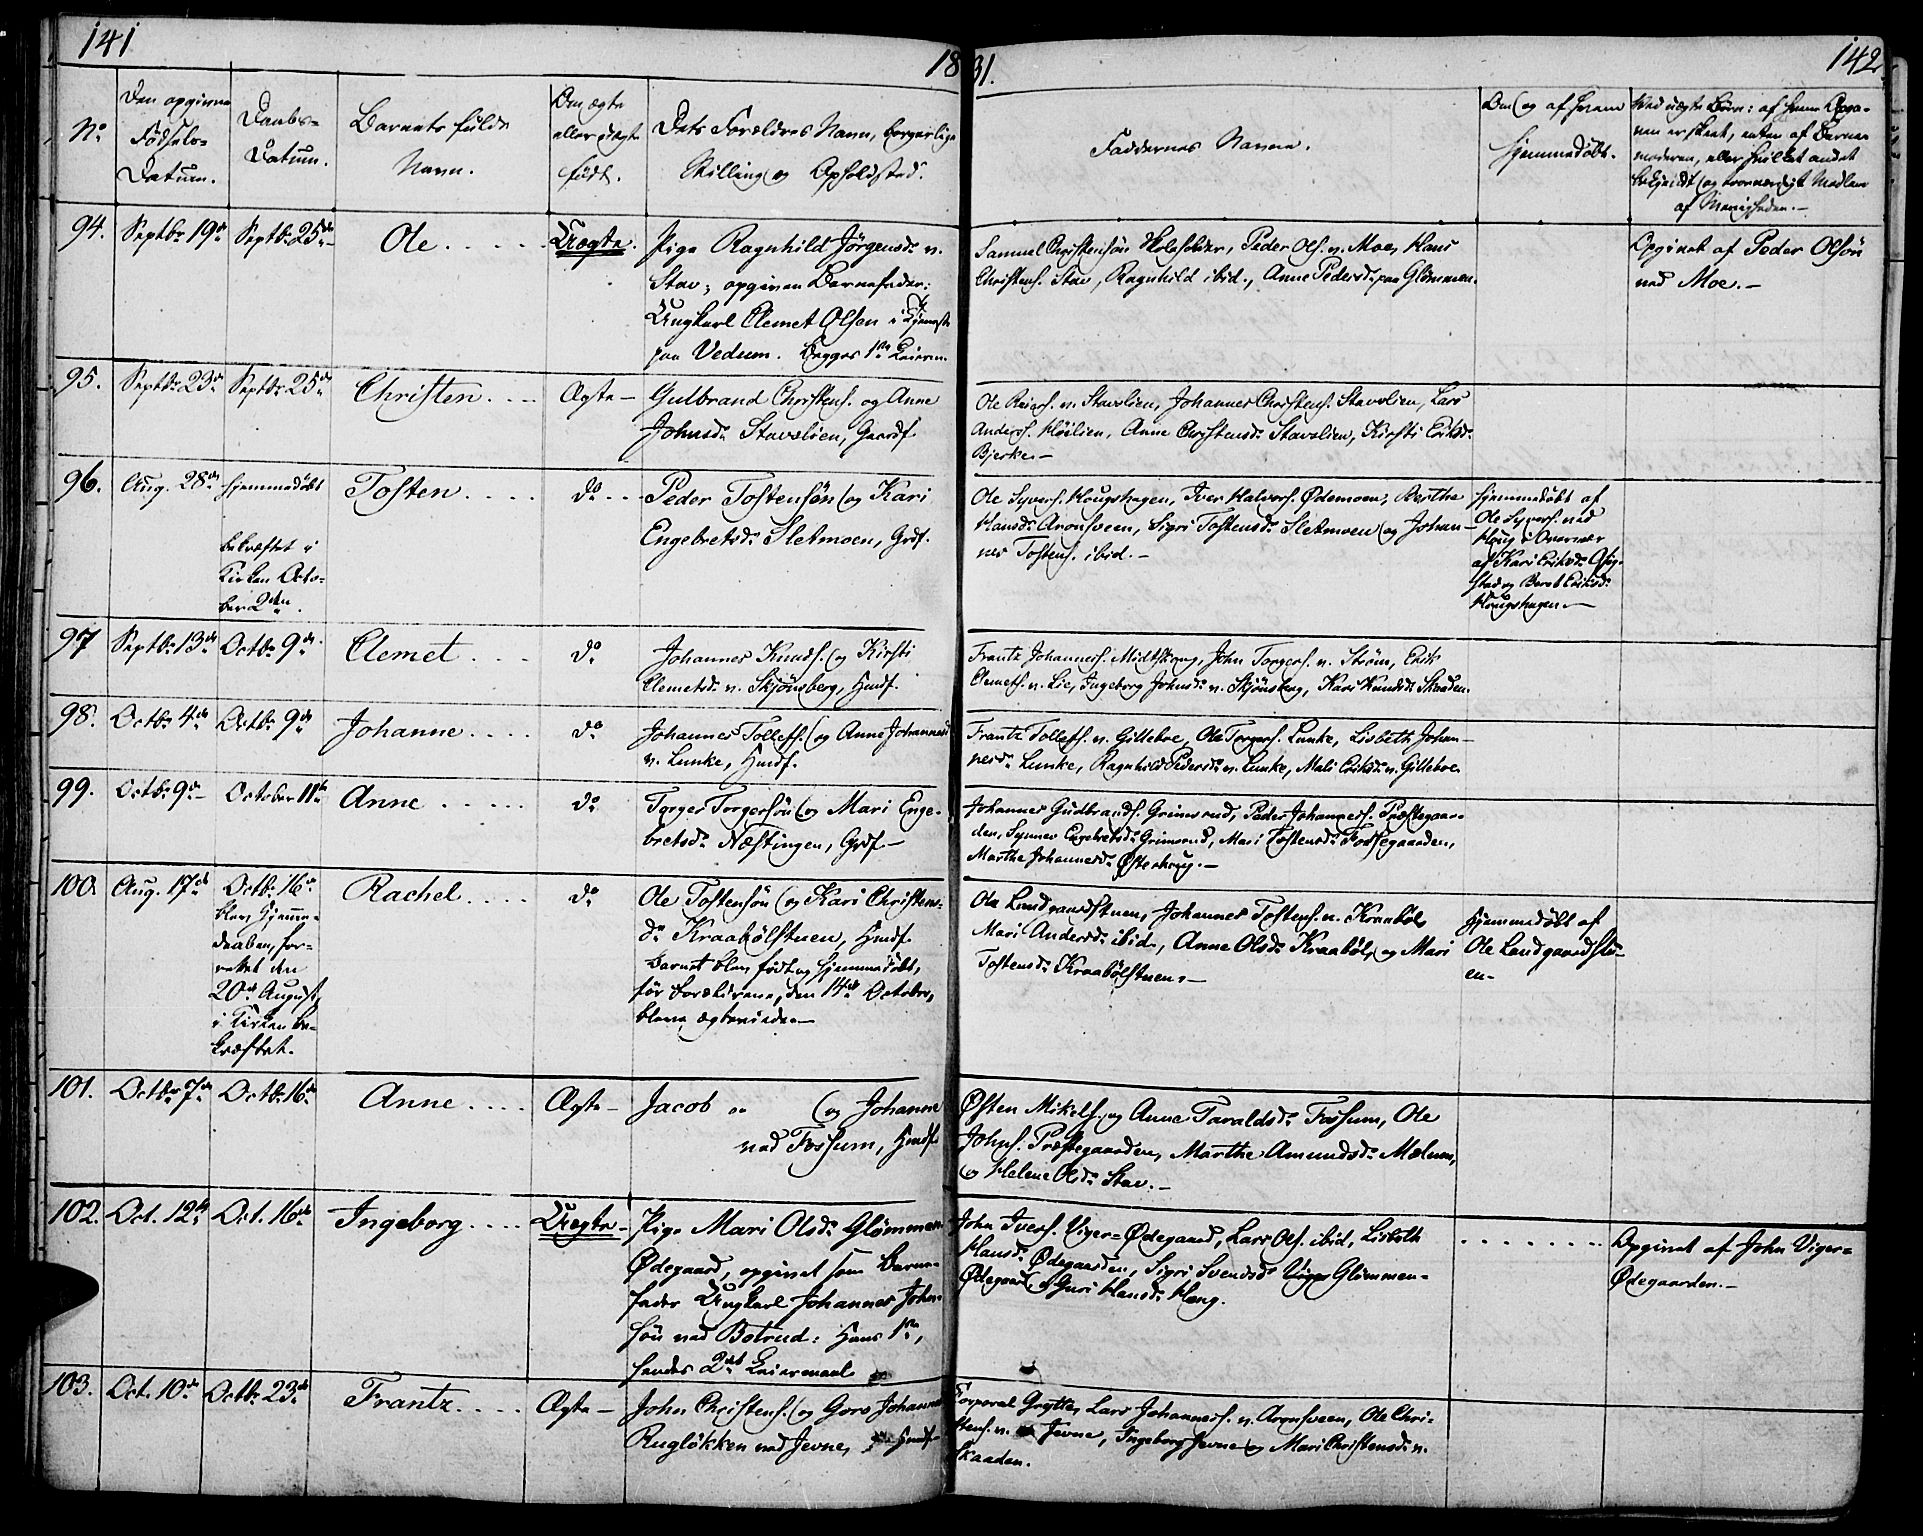 141
1831.
142.
No
Den opgivne
Fødsels-
Datum.
Daabs-
Datum.
Barnets fulde
Navn.
Om ægte
eller uægte
født.
Dets Forældres Navn, borgerlige
Stilling og Opholdssted.
Faddernes Navne.
Om og af hvem
hjemmedøbt.
Ved uægte Børn: af hvem Opga-
ven er skeet, enten af Barne-
moderen, eller hvilket andet
bekjendt og troværdigt Medlem
af Menigheden.-
94.
Septbr 19de
Septbr 25de
Ole . . . . .
Uægte.
Pige Ragnhild Jörgensdr v.
Stav; opgiven Barnefader:
Ungkarl Clemet Olsen i Tjeneste
paa Vedum. Begges 1ste Leierm.
Samuel Christensön Holsæter, Peder Ols. v. Moe, Hans
Christens. Stav, Ragnhild ibid., Anne Pedersdr paa Glömmen.
Opgivet af Peder Olsön
ved Moe.-
95.
Septbr 23de
Septbr 25de
Christen. . . .
Ægte -
Gulbrand Christens. og Anne
Johnsdr Stavslien, Gaardf.
Ole v. Stavslien, Johannes Christens. Stavslien, Lars
Anders. Höilien, Anne Christensdr Stavslien, Kirsti Eriksdr
Bjerke.-
96.
Aug. 28de
hjemmedöbt
bekræftet i
Kirken Octo-
ber 2den.
Tosten. . . . .
do . . .
Peder Tostensön og Kari
Engebretsdr Sletmoen, Grdf.
Ole Syvers. Hougshagen, Iver Halvors. Ödemoen, Berthe
Hansdr Aronsveen, Sigri Tostensdr Sletmoen og Johan-
nes Tostens. ibid.-
hjemmedöbt af
Ole Syvers. ved
Houg i Overvær
af Kari Eriksdr
og Berit Eriksdr
Hougshagen.-
97
Septbr 13de
Octbr 9de
Clemet . . . .
do
Johannes Knuds. og Kirsti
Clemetsdr v. Skjönsberg, Husf.
Frantz Johanness. Midtskoug, John Torgers. v. Ström, Erik
Clemets. v. Lie, Ingeborg Johnsdr v. Skjönsberg, Kari Knudsdr Skaaden.
98.
Octbr 4de
Octbr 9de
Johanne. . . .
do
Johannes Tollefs. og Anne Johannesdr
v. Lunke, Husf.
Frantz Tollefs. v. Gilleboe, Ole Torgers. Lunke, Lisbeth Johan-
nesdr Lunke, Ragnhild Pedersdr v. Lunke, Mali Eriksdr v. Gilleboe.
99.
Octbr 9de -
October 11te
Anne . . . . .
do
Torger Torgersön og Mari Enge-
bretsdr Næstingen, Grdf.-
Johannes Gudbrands. Grimsrud, Peder Johanness. Præstegaar-
den, Synnev Engebretsdr Grimsrud, Mari Tostensdr Præstegaarden,
Marthe Johannesdr Österhoug.-
100.
Aug. 17de
Octbr 16de
blev Hjemme-
daaben, for-
rettet den
20de August,
i Kirken be-
kræftet.
Rachel. . . .
do
Ole Tostensön og Kari Christens-
dr Kraabölstuen, Husf.
Barnet blev födt og hjemmedöbt,
för Forældrene, den 14de October,
bleve ægteviede.-
Ole Landgaardstuen, Johannes Tostens. v. Kraaböl,
Mari Andersdr ibid., Anne Olsdr Kraaböl, og Mari
Tostensdr Kraabölstuen.-
hjemmedöbt af
Ole Landgaardstu-
en-
101.
Octbr 7de
Octbr 16de
Anne. . . . .
Ægte -
Jacob og Johanne
ved Fossum, Husf.
Östen Mikels. og Anne Taraldsdr Fossum, Ole
Johns. Præstegaarden, Marthe Amundsdr Mælum,
og Helene Olsdr Stav.-
102.
Oct. 12te
Oct. 16de
Ingeborg. . . .
Uægte -
Pige Mari Olsdr Glömmen-
Ödegaard, opgivet som Barne-
fader Ungkarl Johannes John-
sön ved Botrud: Hans 1ste,
hendes 2det Leiermaal
John Ivers. Viger-Ödegaard, Lars Ols. ibid, Lisbeth
Hansdr Ödegaarden, Sigri Svendsdr Viger Glömmen-
Ödegaard, og Guri Hansdr Haug.
. . . . . . .
Opgivet af John Viger-
Ödegaarden.-
103.
Oct. 10de
Octbr 23de
Frantz. . . . .
Ægte -
John Christens. og Goro Johannesdr
Ruglökken ved Jevne, Husf.
Corporal Grytte, Lars Johanness. v. Aronsveen, Ole Chri-
stens. v. Jevne, Ingeborg Jevne og Mari Christensdr v.
Skaaden.